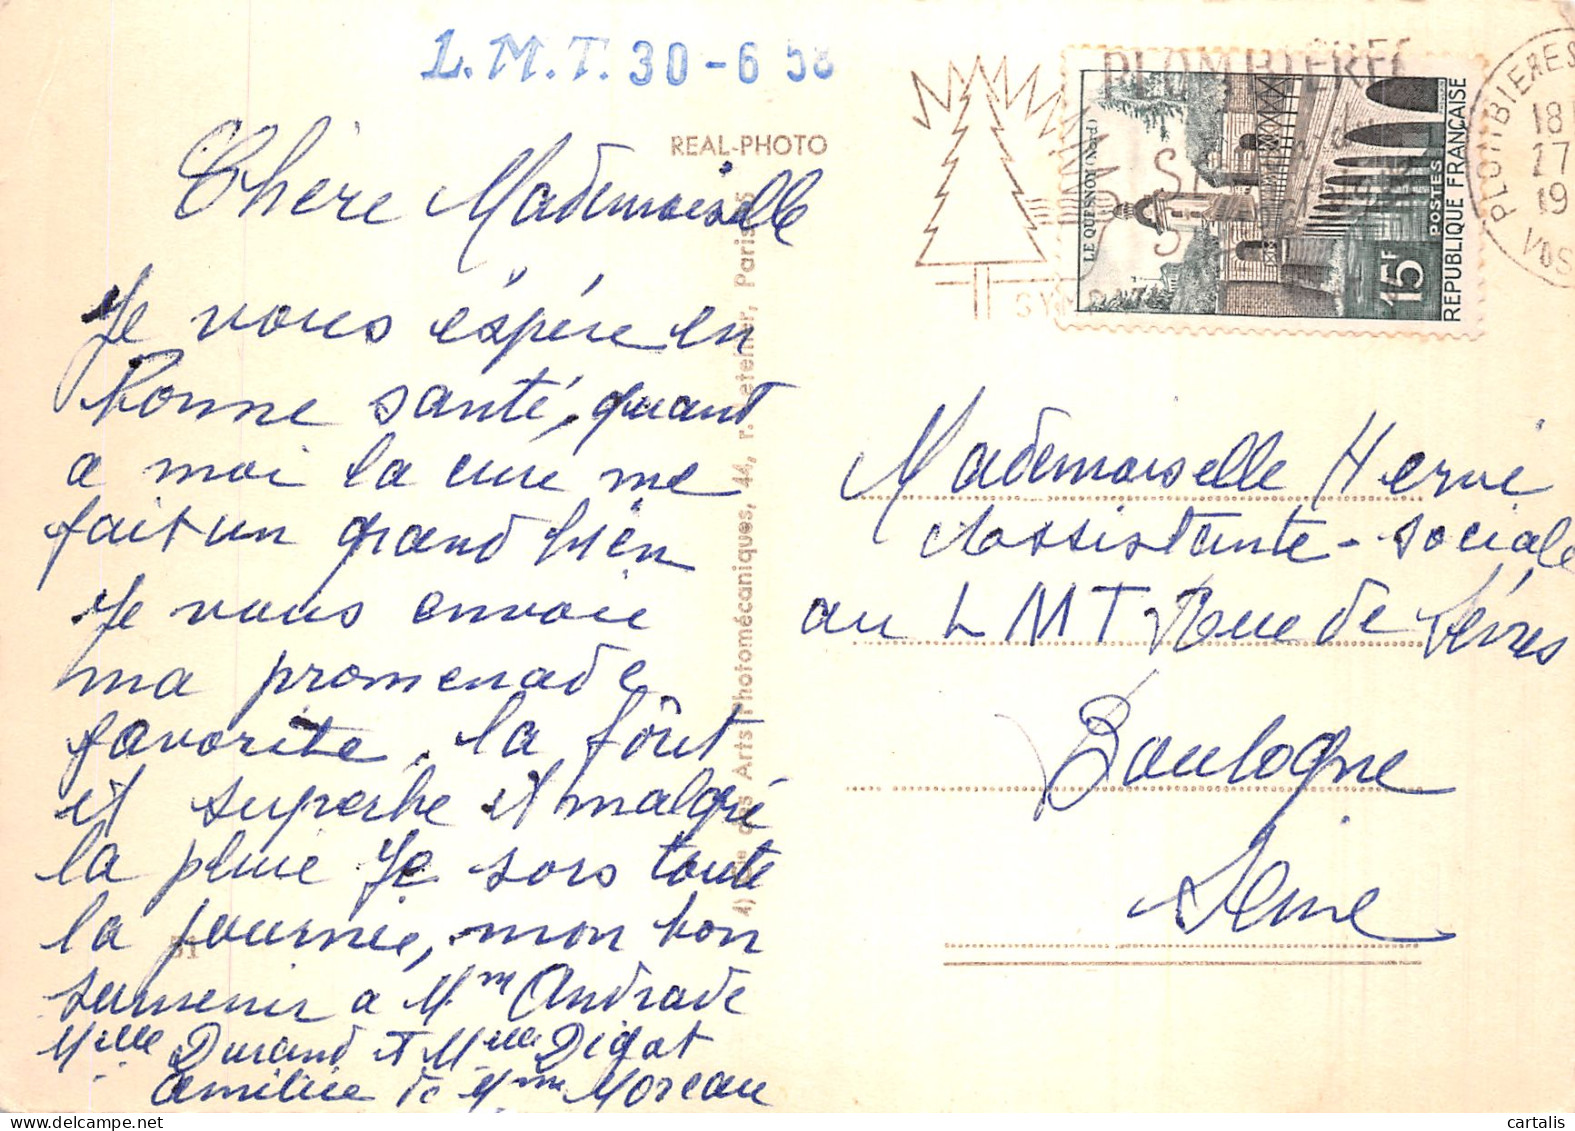 L.M.T. 30-6 58
REAL-PHOTO
Chère Mademoiselle
Je vous éspére en
bonne santé, quant
a moi la cure me
fait un grand bien
Je vous envoie
ma promenade
favorite, la fôret
et superbe et malgré
la pluie Je sors toute
la journée, mon bon
souvenir a Mme Andrade
Mlle Durand et Mlle Digat
amitiée de Mme Moreau
51
Arts Photomécaniques, 44, r. Paris
PLOMBIERES
LE QUESNOY (Nord)
15F
POSTES
REPUBLIQUE FRANÇAISE
PLOMBIERES
18
27
19
VOS
Mademoiselle Hervé
Assistante-sociale
au LMT Rue de Sévres
Boulogne
Seine
cartalis